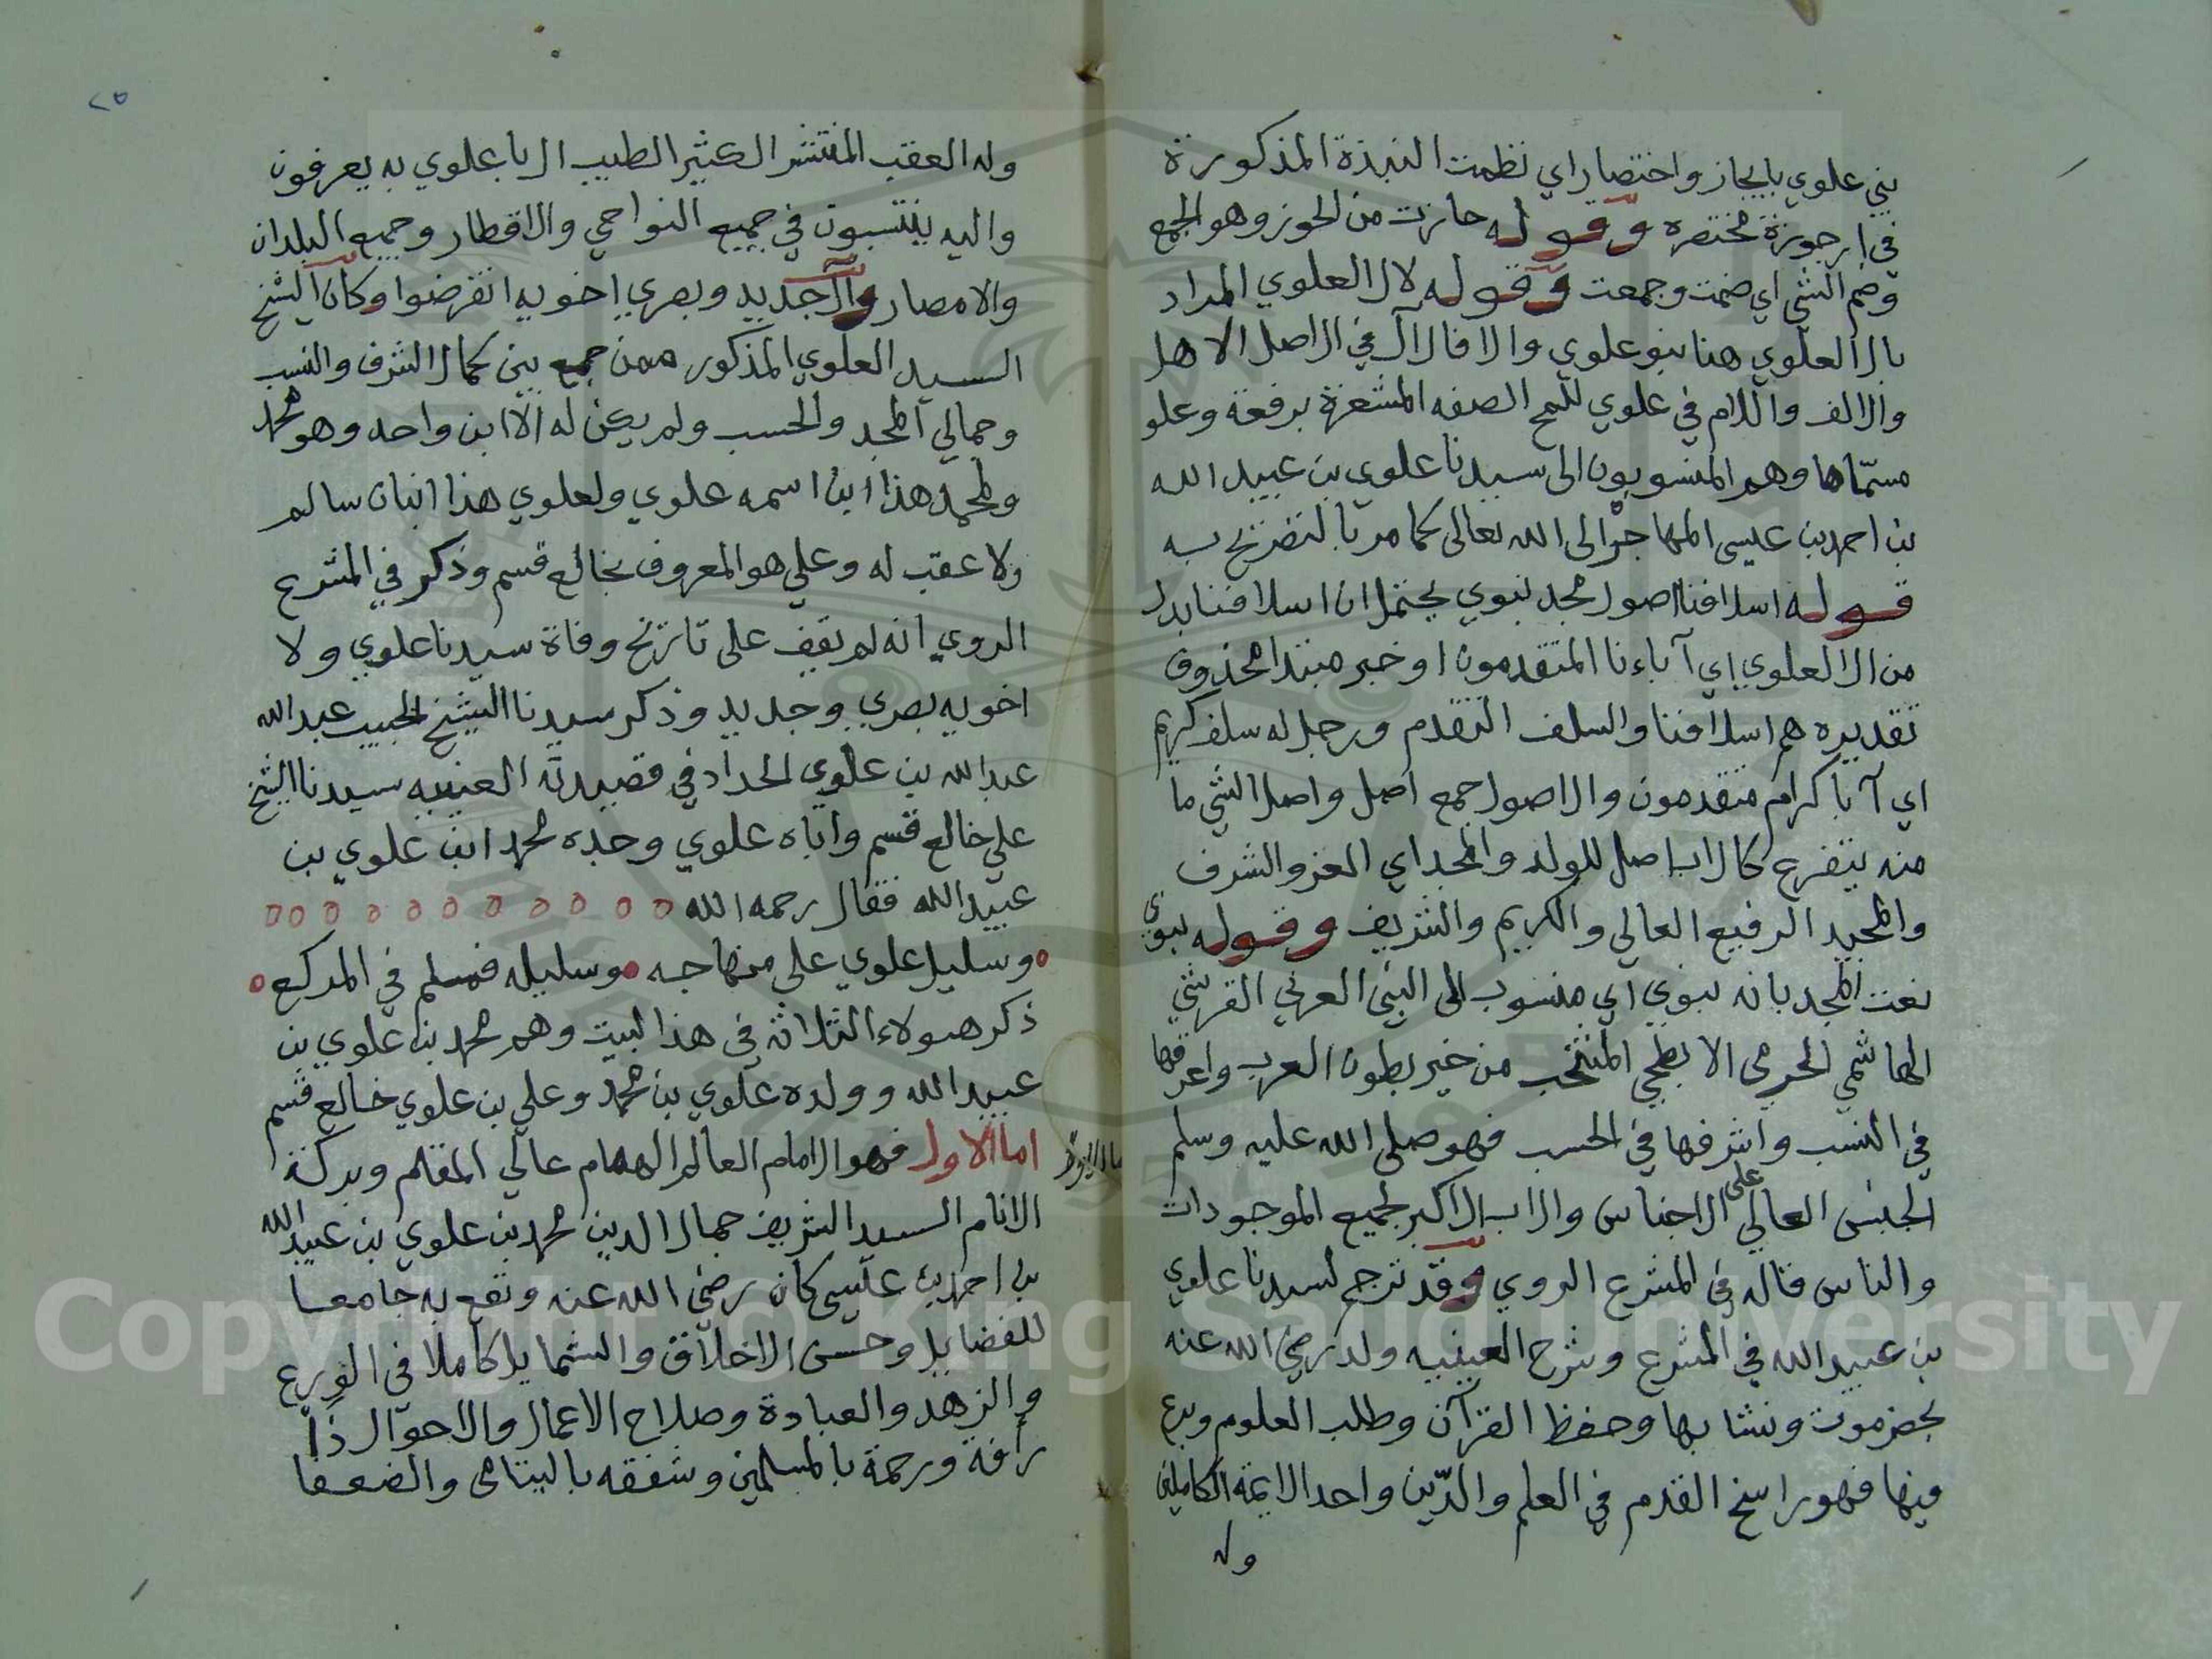 بني علوي بايجاز واختصار اي نظمت النبذة المذكورة
في ارجوزة مختصره وقوله حازت من الحوز وهو الجمع
وضم الشي اي ضمت وجمعت وقوله لال العلوي المراد
بال العلوي هنا بنو علوي والا فالآل في الاصل الاهل
والالف واللام في علوي للمح الصفه المشعرة برفعة وعلو
مسمّاها وهم المنسوبون الى سيدنا علوي بن عبيد الله
بن احمد بن عيسى المهاجر الى الله تعالى كما مر بالتصريح به
قوله اسلافنا اصول مجد نبوي يحتمل ان اسلافنا بدل
من ال العلوي اي آباءنا المتقدمون او خبر مبتدا محذوف
تقديره هم اسلافنا والسلف التقدم ورجل له سلف كريم
اي آبا كرام متقدمون والاصول جمع اصل واصل الشي ما
منه يتفرع كالاب اصل للولد والمجد اي العز والشرف
والمجيد الرفيع العالي والكريم والشريف وقوله نبوي
نعت المجد بانه نبوي اي منسوب الى النبي العربي القرشي
الهاشمي الحرمي الابطحي المنتخب من خير بطون العرب واعرقها
في النسب واشرفها في الحسب فهو صلى الله عليه وسلم
الجنس العالي على الاجناس والاب الاكبر لجميع الموجودات
والناس قاله في المشرع الروي وقد ترجم لسيدنا علوي
بن عبيد الله في المشرع وشرح العينيه ولد رضي الله عنه
بحضرموت ونشا بها وحفظ القرآن وطلب العلوم وبرع
فيها فهو راسخ القدم في العلم والدّين واحد الايمة الكاملين
وله
٢٥
وله العقب المنتشر الكثير الطيب ال باعلوي به يعرفون
واليه ينتسبون في جميع النواحي والاقطار وجميع البلدان
والامصار وآل جديد وبصري اخويه انقرضوا وكان الشيخ
السيد العلوي المذكور ممن جمع بين كمال الشرف والنسب
وجمالي المجد والحسب ولم يكن له الّا ابن واحد وهو محمد
ولمحمد هذا ابن اسمه علوي ولعلوي هذا ابنان سالم
ولا عقب له وعلي هو المعروف بخالع قسم وذكر في المشرع
الروي انه لم نقف على تاريخ وفاة سيدنا علوي ولا
اخويه بصري وجديد وذكر سيدنا الشيخ الحبيب عبد الله
عبد الله بن علوي الحداد في قصيدته العينيه سيدنا الشيخ
علي خالع قسم واباه علوي وجده محمد ابن علوي بن
عبيد الله فقال رحمه الله
وسليل علوي على منهاجه وسليله فمسلم في المركع
ذكر هولاء الثلاثه في هذا البيت وهم محمد بن علوي بن
عبيد الله وولده علوي بن محمد وعلي بن علوي خالع قسم
اما الاول فهو الامام العالم الهمام عالي المقام وبركة
الانام السيد الشريف جمال الدين محمد بن علوي بن عبيد الله
بن احمد بن عيسى كان رضي الله عنه ونفع به جامعا
للفضايل وحسن الاخلاق والشمايل كاملا في الورع
والزهد والعبادة وصلاح الاعمال والاحوال ذا
رأفة ورحمة بالمسلمين وشفقه باليتامى والضعفا
Copyright © King Saud University